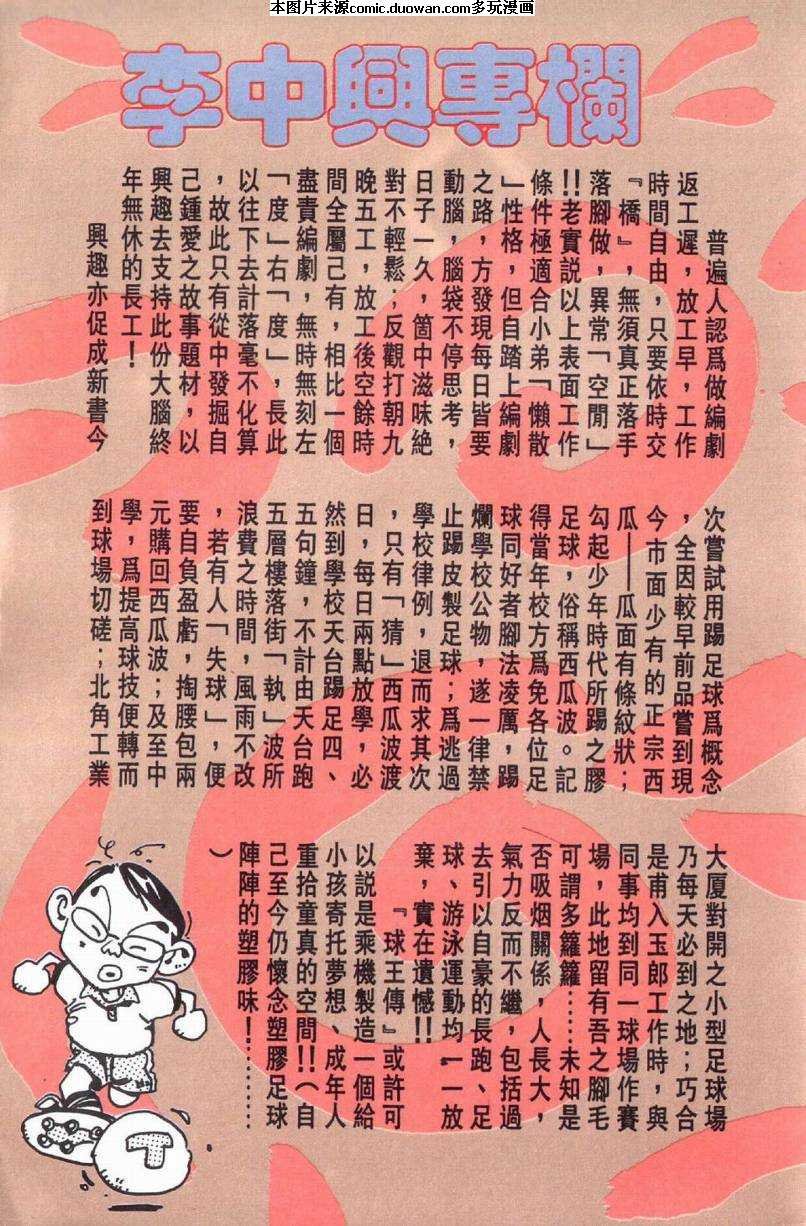 本图片来源comic.duowan.com多玩漫画
李中興專欄
普遍人認爲做編劇
返工遲，放工早，工作
時間自由，只要依時交
『橋』，無須真正落手
落腳做，異常「空閒」
!!老實說以上表面工作
條件極適合小弟「懶散
」性格，但自踏上編劇
之路，方發現每日皆要
動腦，腦袋不停思考，
日子一久，箇中滋味絶
對不輕鬆；反觀打朝九
晚五工，放工後空餘時
間全屬己有，相比一個
盡責編劇，無時無刻左
「度」右「度」，長此
以往下去計落毫不化算
，故此只有從中發掘自
己鍾愛之故事題材，以
興趣去支持此份大腦終
年無休的長工！
興趣亦促成新書今
次嘗試用踢足球爲概念
，全因較早前品嘗到現
今市面少有的正宗西
瓜——瓜面有條紋狀；
勾起少年時代所踢之膠
足球，俗稱西瓜波。記
得當年校方爲免各位足
球同好者腳法凌厲，踢
爛學校公物，遂一律禁
止踢皮製足球；爲逃過
學校律例，退而求其次
，只有「猜」西瓜波渡
日，每日兩點放學，必
然到學校天台踢足四、
五句鐘，不計由天台跑
五層樓落街「執」波所
浪費之時間，風雨不改
，若有人「失球」，便
要自負盈虧，掏腰包兩
元購回西瓜波；及至中
學，爲提高球技便轉而
到球場切磋；北角工業
大厦對開之小型足球場
乃每天必到之地；巧合
是甫入玉郎工作時，與
同事均到同一球場作賽
場，此地留有吾之腳毛
可謂多籮籮……未知是
否吸烟關係，人長大，
氣力反而不繼，包括過
去引以自豪的長跑、足
球、游泳運動均一一放
棄，實在遺憾!!
『球王傳』或許可
以説是乘機製造一個給
小孩寄托夢想、成年人
重拾童真的空間!!（自
己至今仍懷念塑膠足球
陣陣的塑膠味！………
）
T